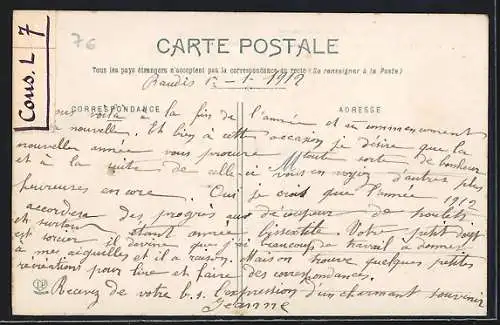 Cons. L 7
76
CARTE POSTALE
Tous les pays étrangers n'acceptent pas la correspondance au recto (Se renseigner à la Poste)
1 - 1 - 1912
CORRESPONDANCE
ADRESSE
voilà à la fin de l'année et au commencement
nouvelle. Et bien à cette occasion je désire que la
nouvelle année vous procure toute sorte de bonheur
et à la suite de celle-ci vous en voyez d'autres plus
heureuses encore. Oui je crois que l'année 1912
accordera des progrès aux
et surtout étant année bisextile. Votre petit doigt
est sorcier il devine que j'ai beaucoup de travail à donner
à mes aiguilles et il a raison. Mais on trouve quelques petites
récréations pour lire et faire des correspondances.
Recevez de votre b. s. l'expression d'un charmant souvenir
Jeanne